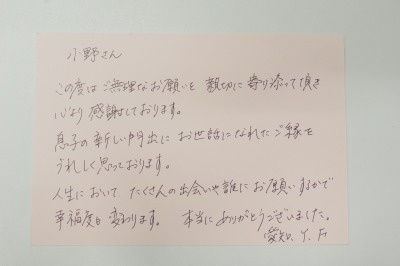 小野さん
この度は ご無理なお願いを 親切に 寄り添って頂き
心より 感謝しております。
息子の 新しい門出に お世話になれた ご縁を
うれしく思っております。
人生において、たくさんの出会いや誰に お願いするかで
幸福度も 変わります。 本当に ありがとうございました。
愛知、Y.F